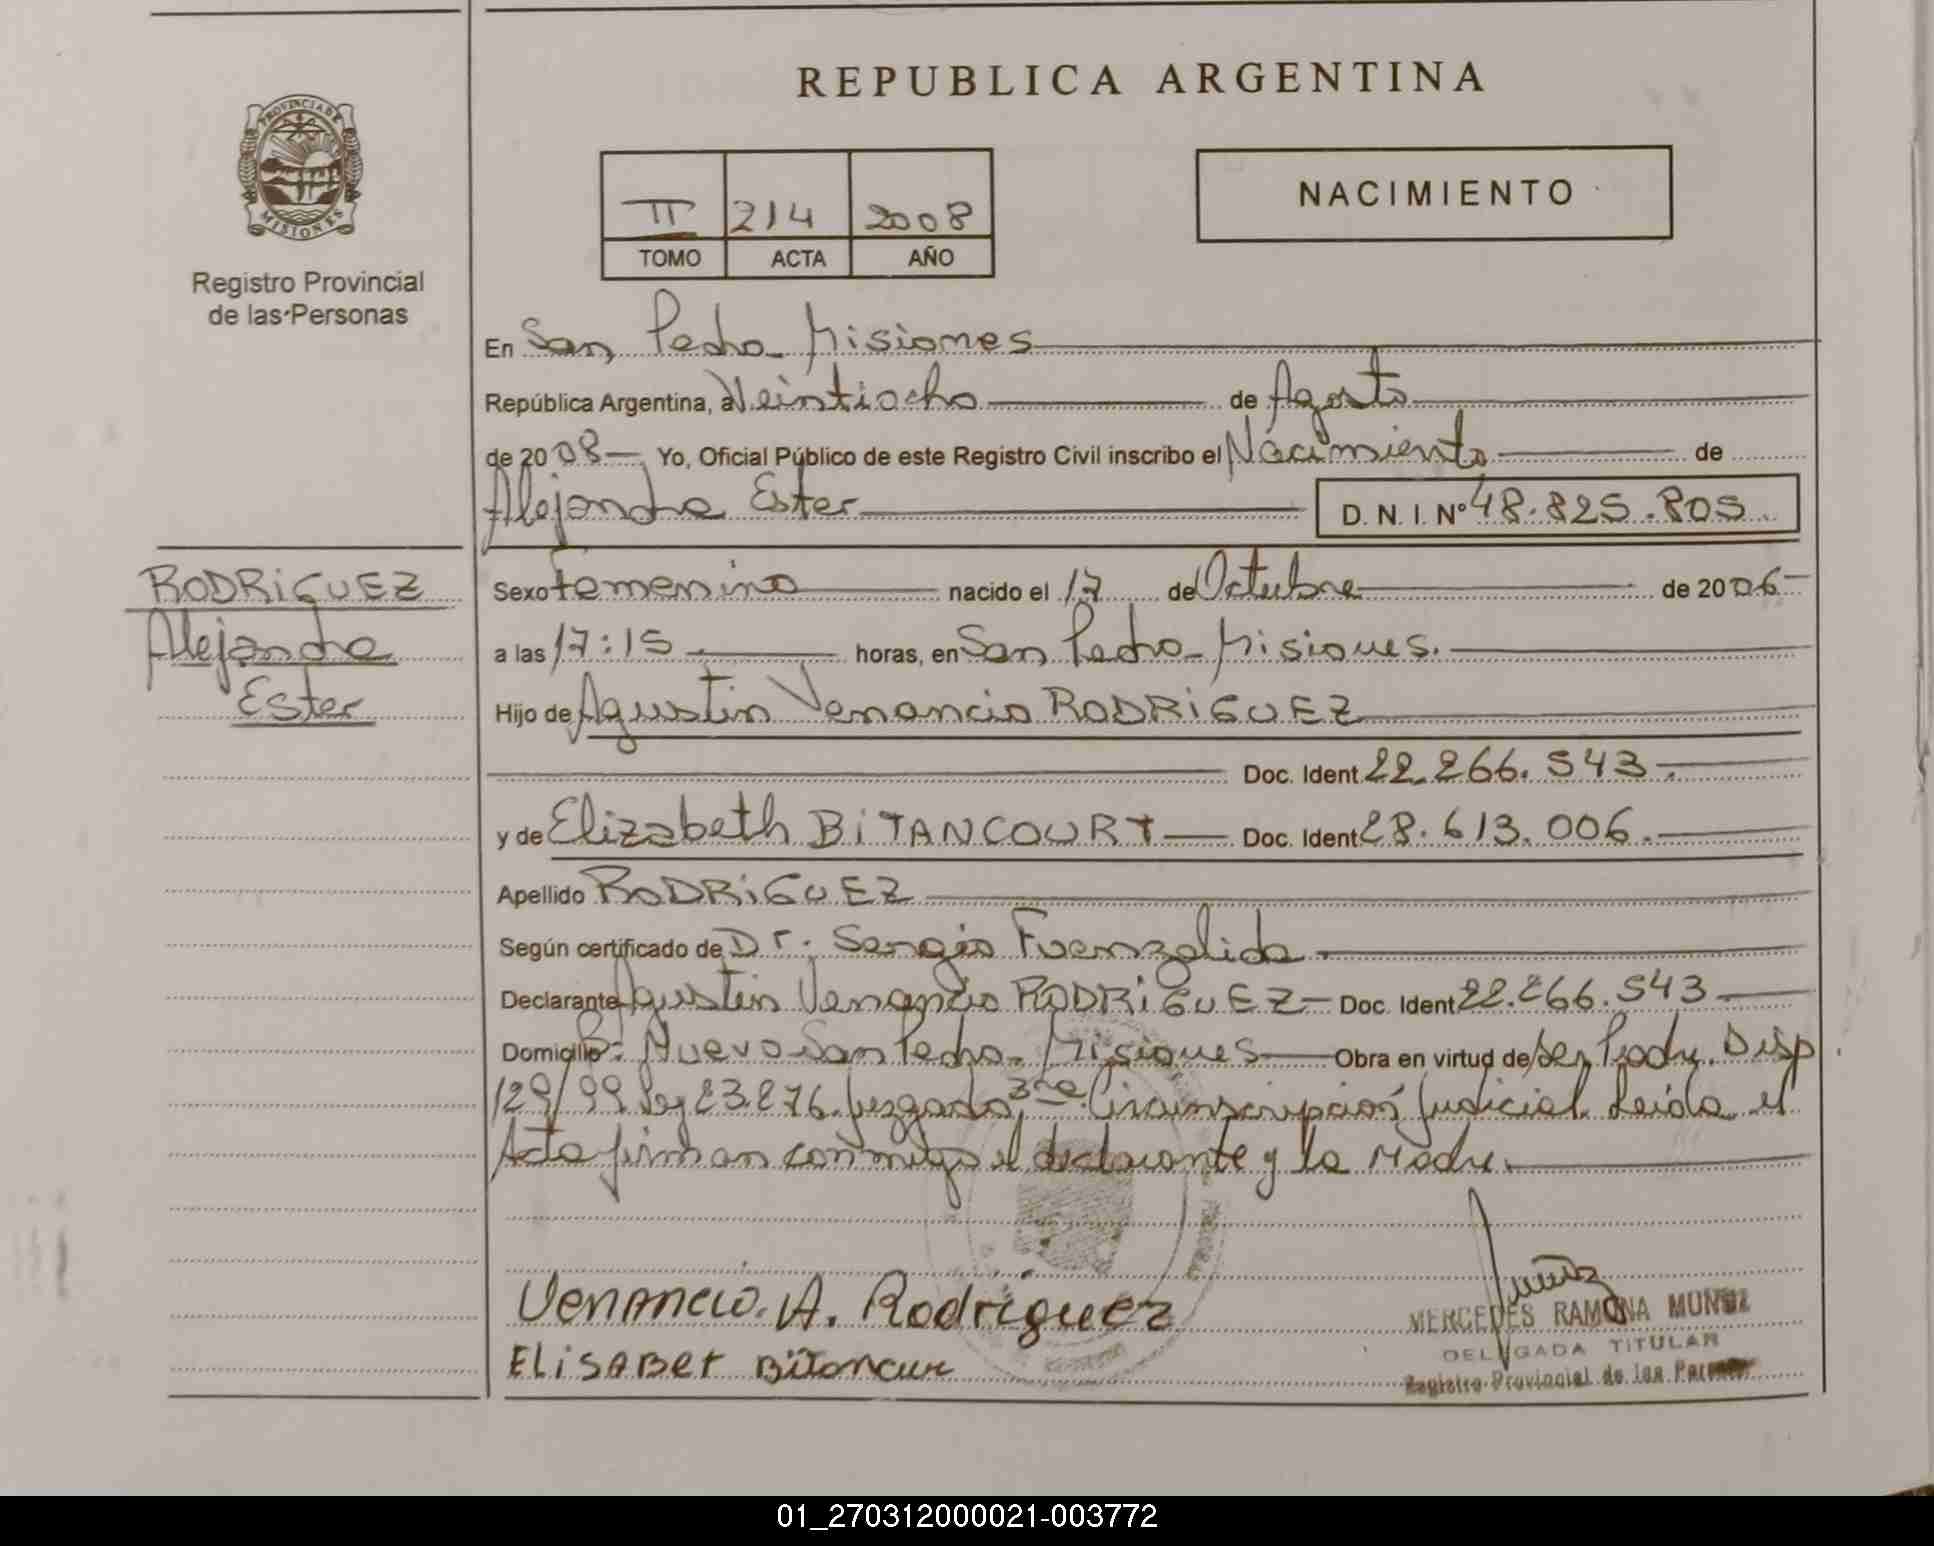 REPUBLICA ARGENTINA
PROVINCIA DE MISIONES
Registro Provincial
de las Personas
NACIMIENTO
II 214 2008
TOMO ACTA AÑO
En San Pedro Misiones
República Argentina, a Veintiocho de Agosto
de 2008 Yo, Oficial Público de este Registro Civil inscribo el Nacimiento de
Alejandra Ester D. N. I. Nº 48.825.805
RODRIGUEZ
Alejandra
Ester
Sexo Femenino nacido el 17 de Octubre de 2006
a las 17:15 horas, en San Pedro Misiones.
Hijo de Agustin Venancio RODRIGUEZ
Doc. Ident 22.266.543.
y de Elizabeth BITANCOURT Doc. Ident 28.613.006.
Apellido RODRIGUEZ
Según certificado de Dr. Sergio Fuenzalida
Declarante Agustin Venancio RODRIGUEZ Doc. Ident 22.266.543
Domicilio Bº: Nuevo San Pedro Misiones Obra en virtud de ser Padre. Disp.
129/99 ley 23.276. Juzgado 3ra Circunscripción Judicial. Leída el
Acta firman conmigo el declarante y la Madre.
Venancio. A. Rodriguez
ELiSABEt Bitancur
MERCEDES RAMONA MUÑOZ
DELEGADA TITULAR
Registro Provincial de las Personas
01_270312000021-003772